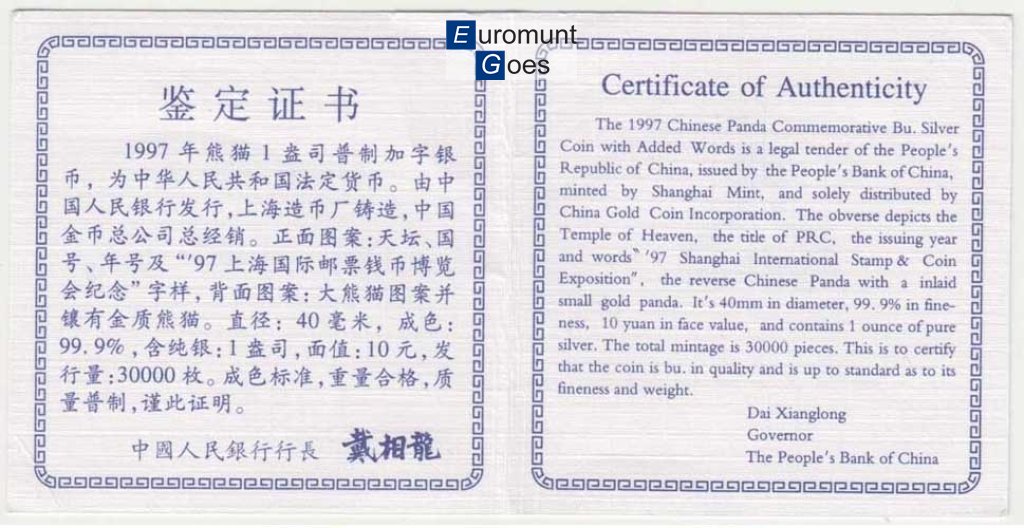 Euromunt
Goes
鉴定证书
1997年熊猫1盎司普制加字银
币，为中华人民共和国法定货币。由中
国人民银行发行，上海造币厂铸造，中国
金币总公司总经销。正面图案：天坛、国
号、年号及“'97上海国际邮票钱币博览
会纪念”字样，背面图案：大熊猫图案并
镶有金质熊猫。直径：40毫米，成色：
99.9%，含纯银：1盎司，面值：10元，发
行量：30000枚。成色标准，重量合格，质
量普制，谨此证明。
中國人民銀行行長 戴相龍
Certificate of Authenticity
The 1997 Chinese Panda Commemorative Bu. Silver
Coin with Added Words is a legal tender of the People's
Republic of China, issued by the People's Bank of China,
minted by Shanghai Mint, and solely distributed by
China Gold Coin Incorporation. The obverse depicts the
Temple of Heaven, the title of PRC, the issuing year
and words“ '97 Shanghai International Stamp & Coin
Exposition", the reverse Chinese Panda with a inlaid
small gold panda. It's 40mm in diameter, 99.9% in fine-
ness, 10 yuan in face value, and contains 1 ounce of pure
silver. The total mintage is 30000 pieces. This is to certify
that the coin is bu. in quality and is up to standard as to its
fineness and weight.
Dai Xianglong
Governor
The People's Bank of China